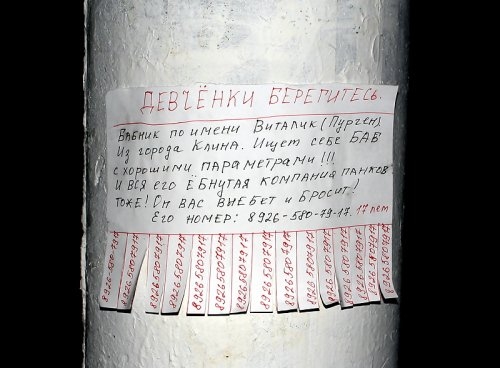 ДЕВЧЁНКИ БЕРЕГИТЕСЬ.
БАБНИК ПО ИМЕНИ ВИТАЛИК (ПУРГЕН)
ИЗ ГОРОДА КЛИНА. ИЩЕТ СЕБЕ БАБ
С ХОРОШИМИ ПАРАМЕТРАМИ!!!
И ВСЯ ЕГО ЁБНУТАЯ КОМПАНИЯ ПАНКОВ
ТОЖЕ! ОН ВАС ВЫЕБЕТ И БРОСИТ!
ЕГО НОМЕР: 8926-580-79-17. 17 лет
8926 580 7917
8926 580 7917
8926 580 7917
8926 580 7917
8926 580 7917
8926 580 7917
8926 580 7917
8926 580 7917
8926 580 7917
8926 580 7917
8926 580 7917
8926 580 7917
8926 580 7917